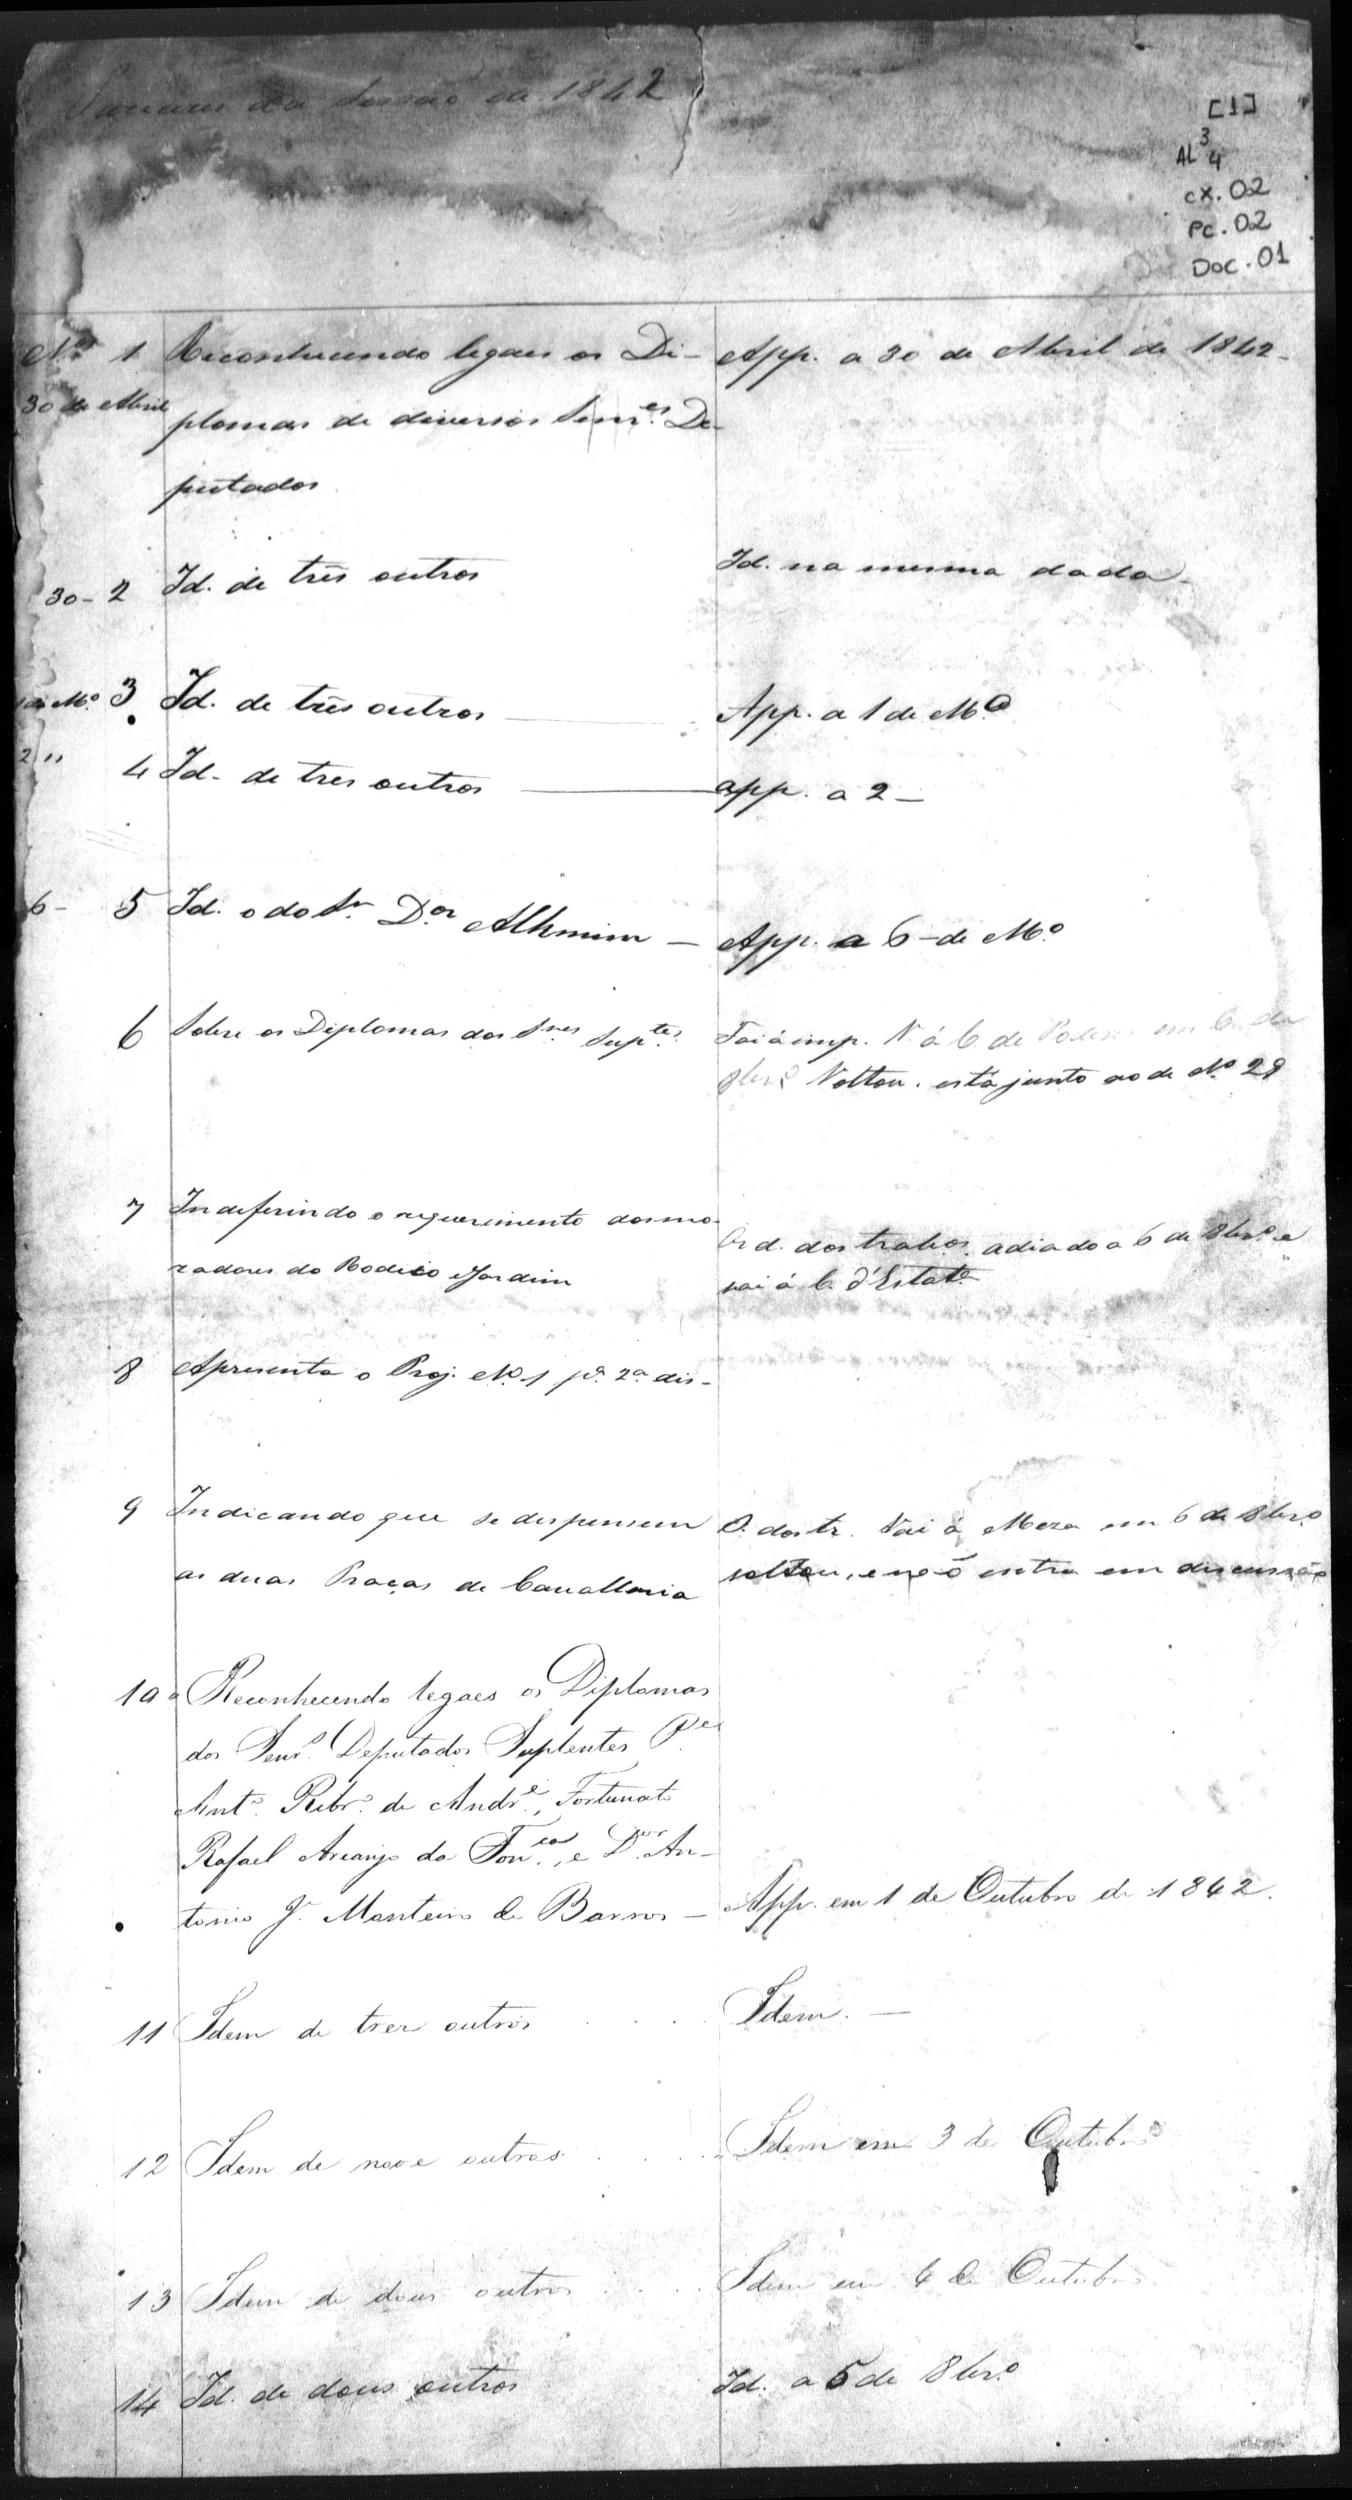 Pareceres da Sessão de 1842
[1]
AL 3 4
cx. 02
Pc. 02
Doc. 01
Nº 1 Reconhecendo legaes os Di- App. a 30 de Abril de 1842-
30 de Abril
plomas de diversos Senr.es De-
putados
30- 2 Id. de três outros Id. na mesma dada-
1 de Mº 3 Id. de três outros App. a 1 de Mº
2 " 4 Id- de tres outros app. a 2-
6- 5 Id. o do Sr. D.or Alkmim - App. a 6-de Mº
6 Sobre os Diplomas dos Snres Supt.es Foi á imp. V. á C. de Poderes em 6 de
8brº Voltou. está junto ao de Nº 29
7 Indeferindo o requerimento dos mo-
radores do Rodeio Jardim
Ord. dos trabos. adiado a 6 de 8brº e
vai á C. d'Estate
8 Apresenta o Proj. Nº 1 pª 2ª dis-
9 Indicando que se dispensem O. dos tr. Vai á Meza em 6 de 8brº
as duas Praças de Cavallaria voltou, e não entra em discussão
10 Reconhecendo legaes os Diplomas
dos Senr.s Deputados Suplentes P.e
Antº Ribrº de Andr.e, Fortunato
Rafael Arcanjo da Fon.ca, e D.or An-
tonio J. Monteiro de Barros - App. em 1 de Outubro de 1842.
11 Idem de tres outros . . . . Idem. -
12 Idem de nove outros . . . . Idem em 3 de Outubro
13 Idem de dous outros . . . . Idem em 4 de Outubro
14 Id. de dous outros Id. a 5 de 8brº